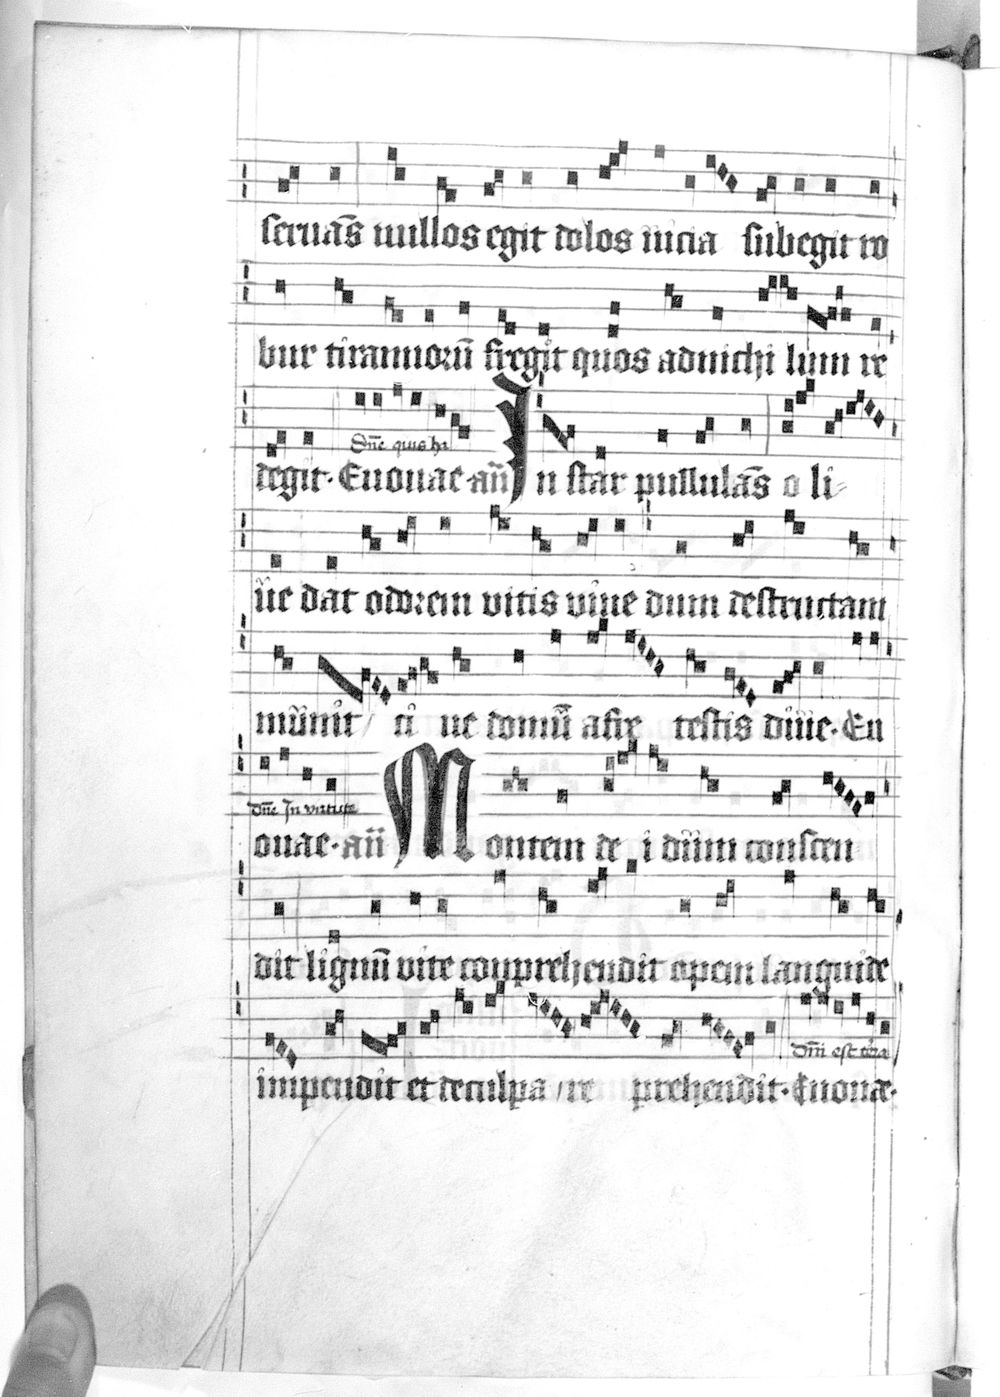 seruãs nullos egit dolos uicia subegit ro
bur tirannorũ fregit quos adnichi lum re
Dñe quis ha
degit. Euouae. añ In star pullulãs o li
ue dat odorem vitis viue dum destructam
munit ti ue domũ a fixe testis diue. Eu
Dñe In virtute
ouae. añ Montem de i diuum conscen
dit lignũ vite comprehendit opem languide
Dñi est terra
impendit et de culpa re prehendit. Euouae.